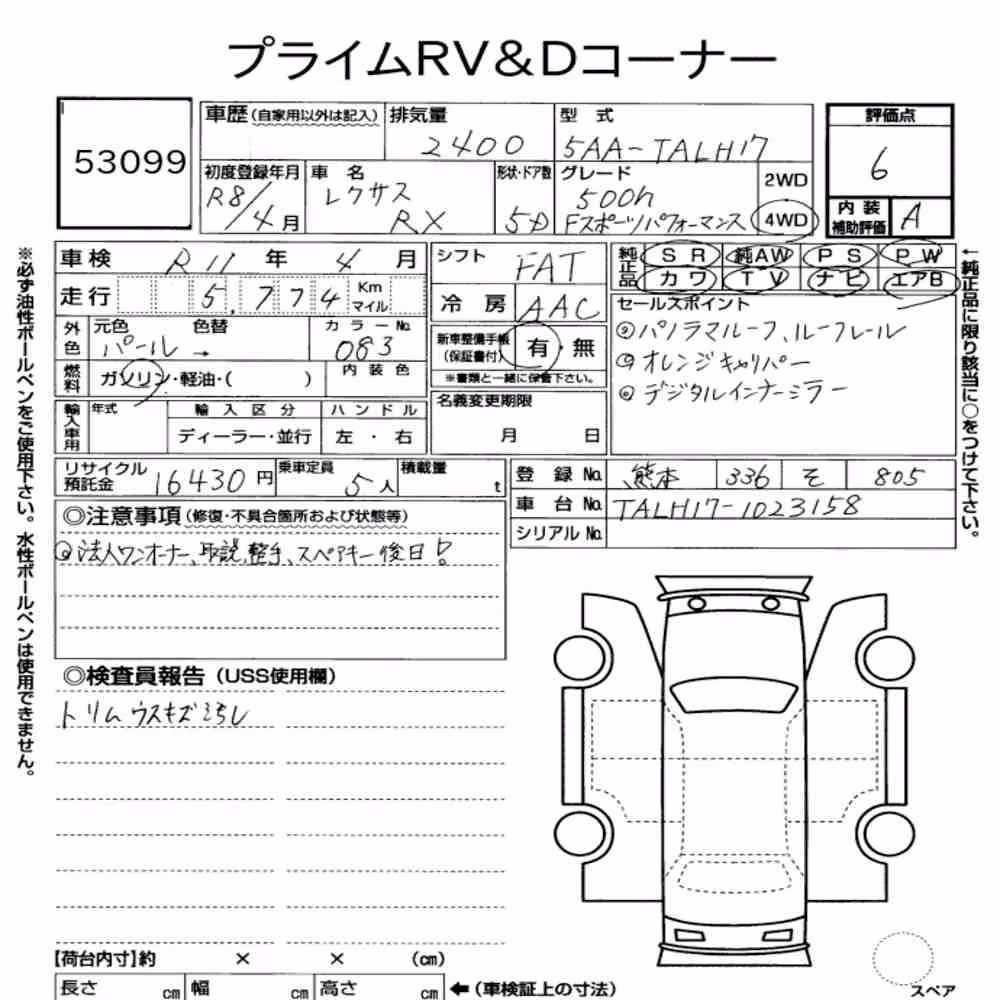 プライムRV&Dコーナー
53099
車歴(自家用以外は記入) 排気量 2400 型式 5AA-TALH17
評価点 6
内装補助評価 A
初度登録年月 R8/4月 車名 レクサス RX 形状・ドア数 5D グレード 500h Fスポーツパフォーマンス 2WD 4WD
車検 R11年 4月
走行 5,774 Km マイル
シフト FAT
冷房 AAC
純正品 SR 純AW PS PW
カワ TV ナビ エアB
外色 元色 パール 色替 → カラーNo. 083
燃料 ガソリン・軽油・( ) 内装色
新車整備手帳(保証書付) 有・無
※書類と一緒に保管下さい。
セールスポイント
◎パノラマルーフ、ルーフレール
◎オレンジキャリパー
◎デジタルインナーミラー
輸入車用 年式 輸入区分 ハンドル
ディーラー・並行 左・右
名義変更期限
月 日
リサイクル預託金 16430円 乗車定員 5人 積載量 t
登録No. 熊本 336 そ 805
車台No. TALH17-1023158
シリアルNo.
◎注意事項(修復・不具合箇所および状態等)
◎法人ワンオーナー、取説、整手、スペアキー後日!
◎検査員報告(USS使用欄)
トリムウスキズ
【荷台内寸】約 × × (cm)
長さ cm 幅 cm 高さ cm ←(車検証上の寸法)
スペア
※必ず油性ボールペンをご使用下さい。水性ボールペンは使用できません。
←純正品に限り該当に○をつけて下さい。